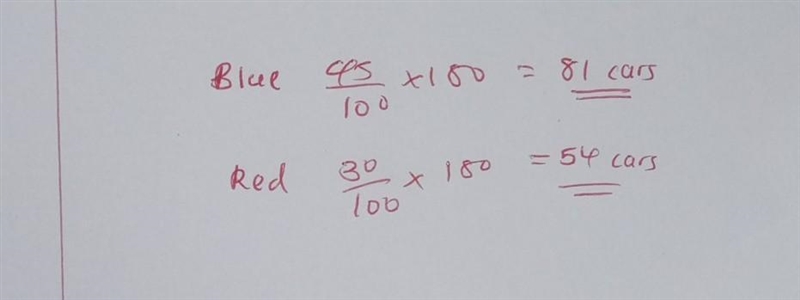 Blue 45/100 × 180 = 81 cars
Red 30/100 × 180 = 54 cars